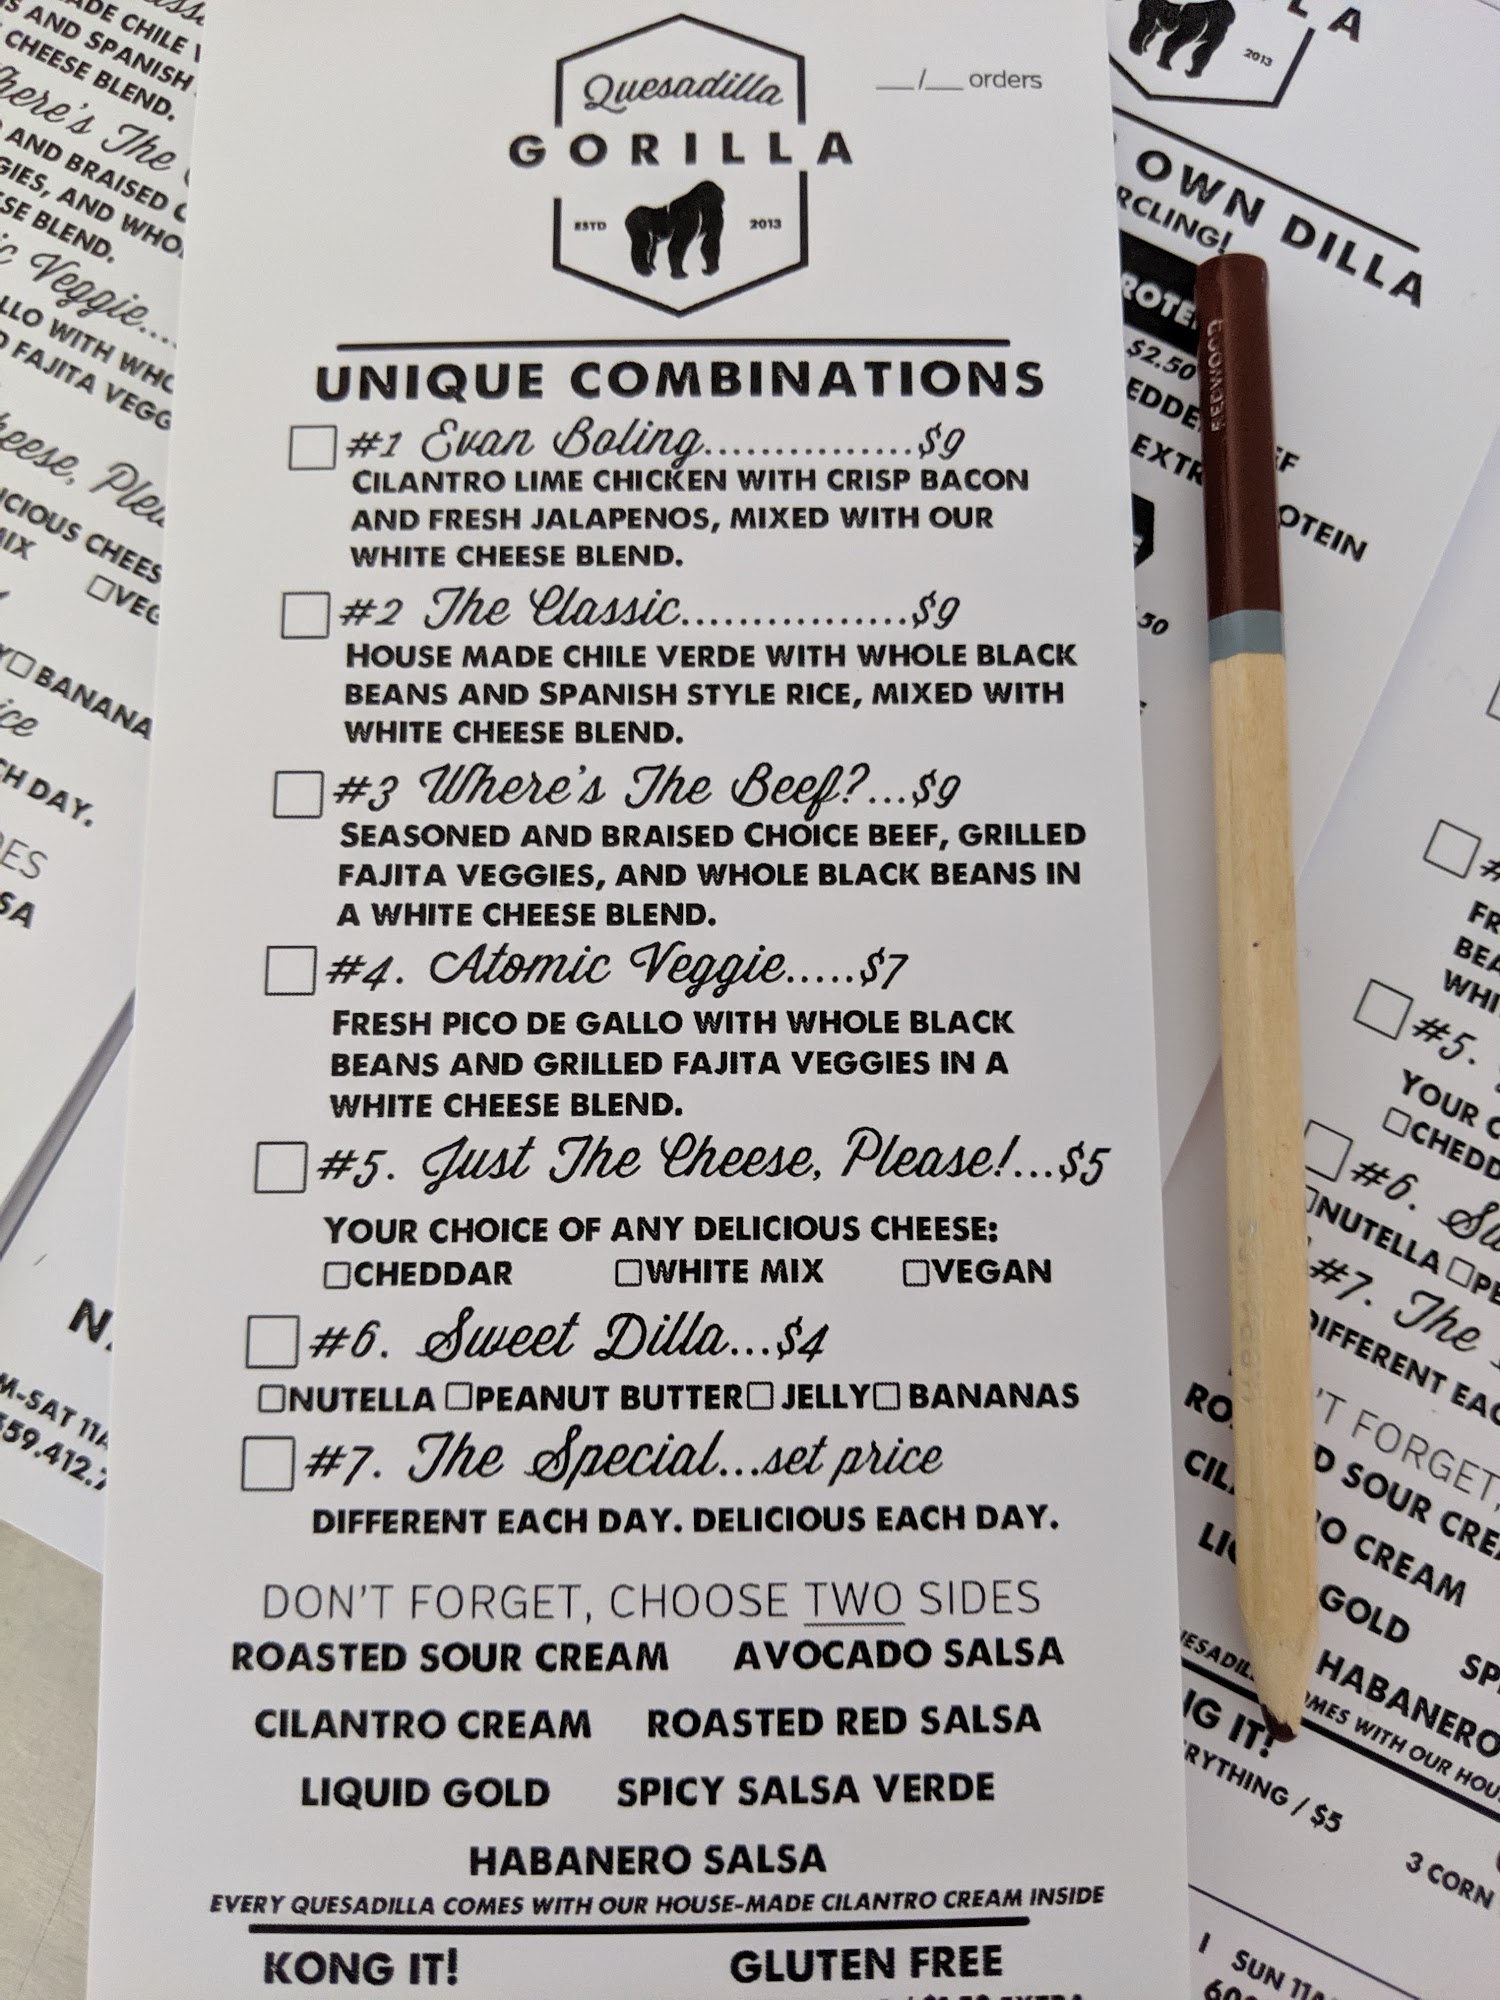 Quesadilla
GORILLA
ESTD 2013
__/__ orders
UNIQUE COMBINATIONS
#1 Evan Boling................$9
CILANTRO LIME CHICKEN WITH CRISP BACON
AND FRESH JALAPENOS, MIXED WITH OUR
WHITE CHEESE BLEND.
#2 The Classic.................$9
HOUSE MADE CHILE VERDE WITH WHOLE BLACK
BEANS AND SPANISH STYLE RICE, MIXED WITH
WHITE CHEESE BLEND.
#3 Where's The Beef?...$9
SEASONED AND BRAISED CHOICE BEEF, GRILLED
FAJITA VEGGIES, AND WHOLE BLACK BEANS IN
A WHITE CHEESE BLEND.
#4. Atomic Veggie.....$7
FRESH PICO DE GALLO WITH WHOLE BLACK
BEANS AND GRILLED FAJITA VEGGIES IN A
WHITE CHEESE BLEND.
#5. Just The Cheese, Please!...$5
YOUR CHOICE OF ANY DELICIOUS CHEESE:
☐CHEDDAR ☐WHITE MIX ☐VEGAN
#6. Sweet Dilla...$4
☐NUTELLA ☐PEANUT BUTTER☐ JELLY☐ BANANAS
#7. The Special...set price
DIFFERENT EACH DAY. DELICIOUS EACH DAY.
DON'T FORGET, CHOOSE TWO SIDES
ROASTED SOUR CREAM AVOCADO SALSA
CILANTRO CREAM ROASTED RED SALSA
LIQUID GOLD SPICY SALSA VERDE
HABANERO SALSA
EVERY QUESADILLA COMES WITH OUR HOUSE-MADE CILANTRO CREAM INSIDE
KONG IT! GLUTEN FREE
2013
OWN DILLA
$2.50
REDWOOD
#5.
YOUR
#6.
NUTELLA
#7. The
DIFFERENT
SOUR
CREAM
GOLD
HABANERO
COMES WITH OUR
IT!
/ $5
3 CORN
SUN
CHILE
AND SPANISH
CHEESE BLEND.
The
AND BRAISED
AND
BLEND.
Veggie....
WITH
FAJITA
BANANA
DAY.